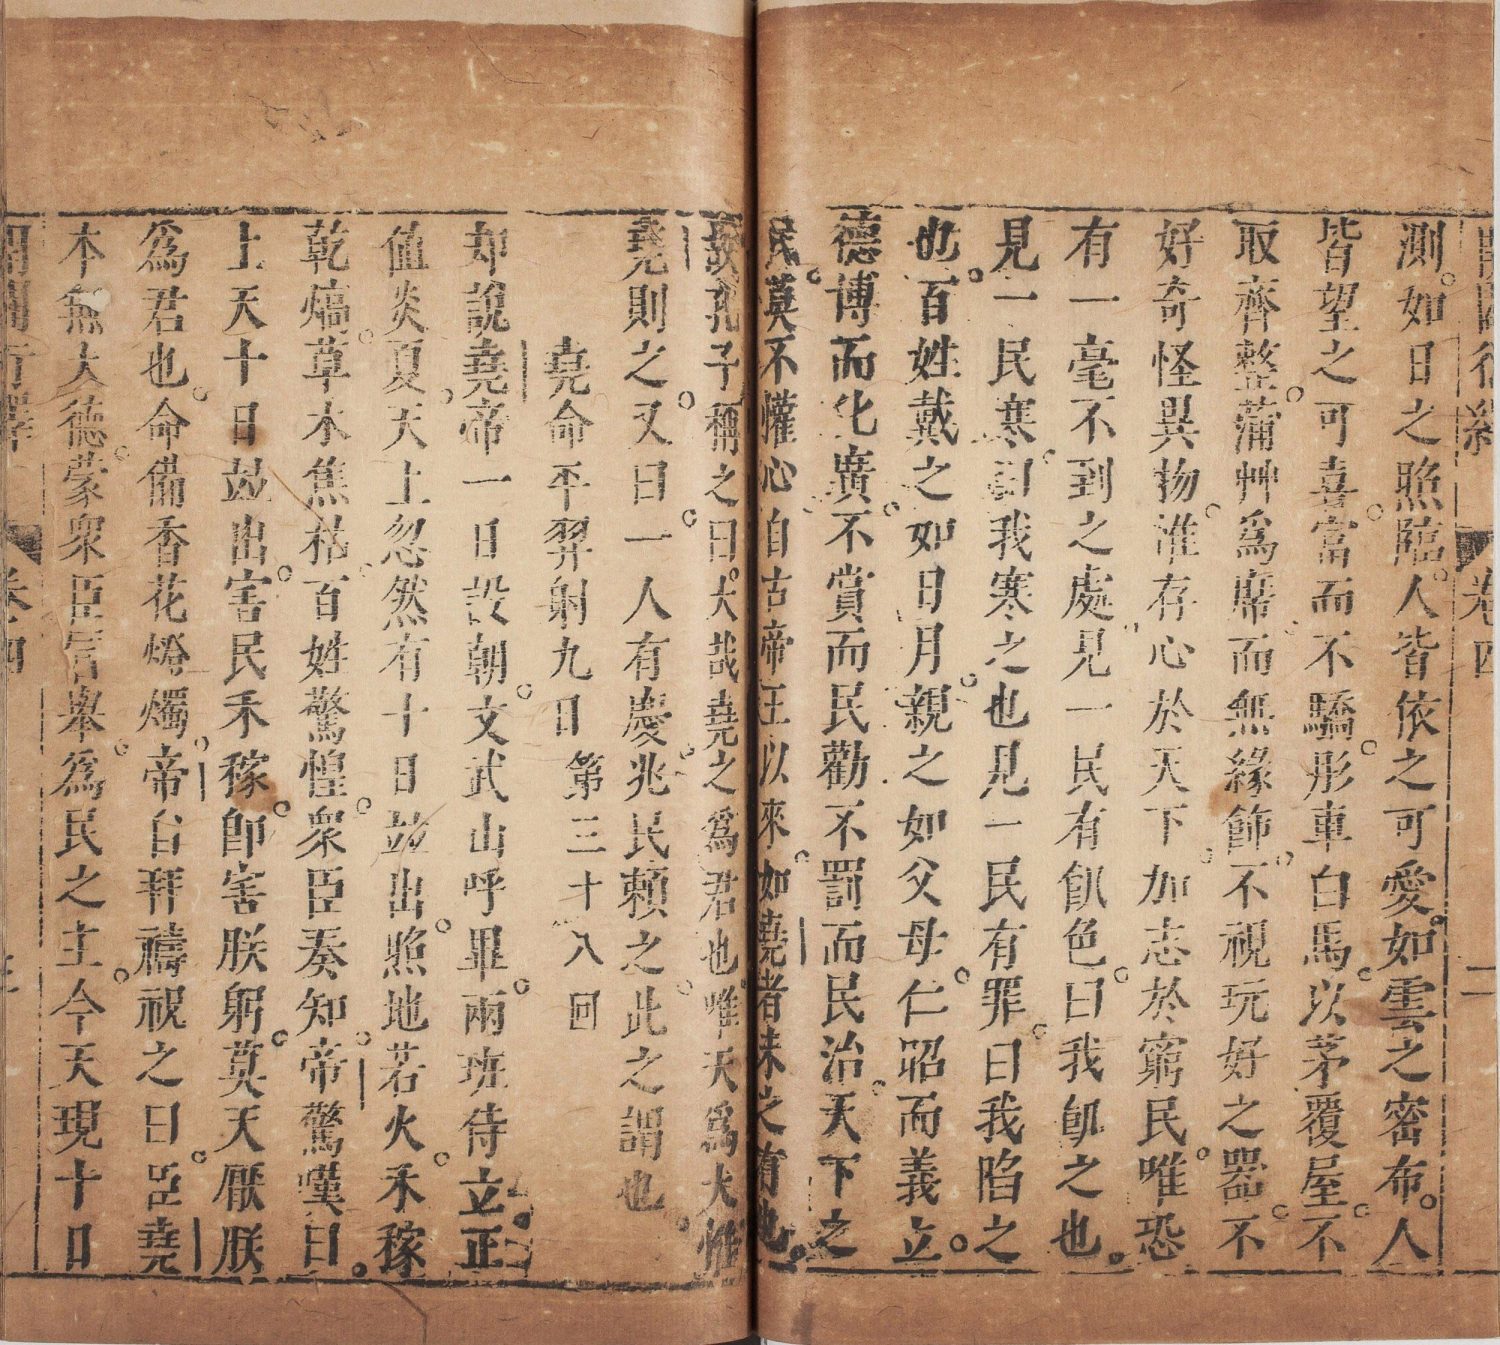 測如日之照臨人皆依之可愛如雲之密布人
皆望之可喜富而不驕彤車白馬以茅覆屋不
取齊整蒲艸爲席而無緣飾不視玩好之器不
好奇怪異物淮存心於天下加志於窮民唯恐
有一毫不到之處見一民有飢色曰我飢之也
見一民寒曰我寒之也見一民有罪曰我陷之
也百姓戴之如日月親之如父母仁昭而義立
德博而化廣不賞而民勸不罰而民治天下之
民莫不懽心自古帝王以來如堯者未之有也
故孔子稱之曰大哉堯之爲君也唯天爲大惟
堯則之又曰一人有慶兆民賴之此之謂也
堯命平羿射九日 第三十八回
却說堯帝一日設朝文武山呼畢兩班侍立正
值炎夏天上忽然有十日並出照地若火禾稼
乾熇草木焦枯百姓驚惶衆臣奏知帝驚嘆曰
上天十日並出害民禾稼卽害朕躬莫天厭朕
爲君也命備香花燈燭帝自拜禱祝之曰臣堯
本無大德蒙衆臣官舉爲民之主今天現十日
卷四
二
卷四